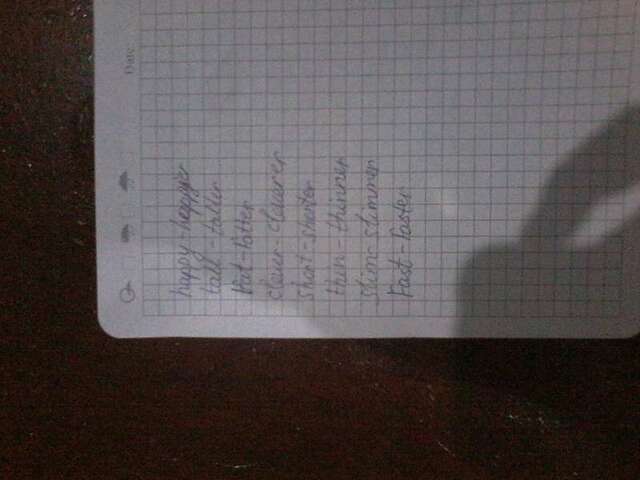 Date:
happy-happyer
tall-taller
Fat-Fatter
clever-cleverer
short-shorter
thin-thinner
slim-slimmer
Fast-Faster